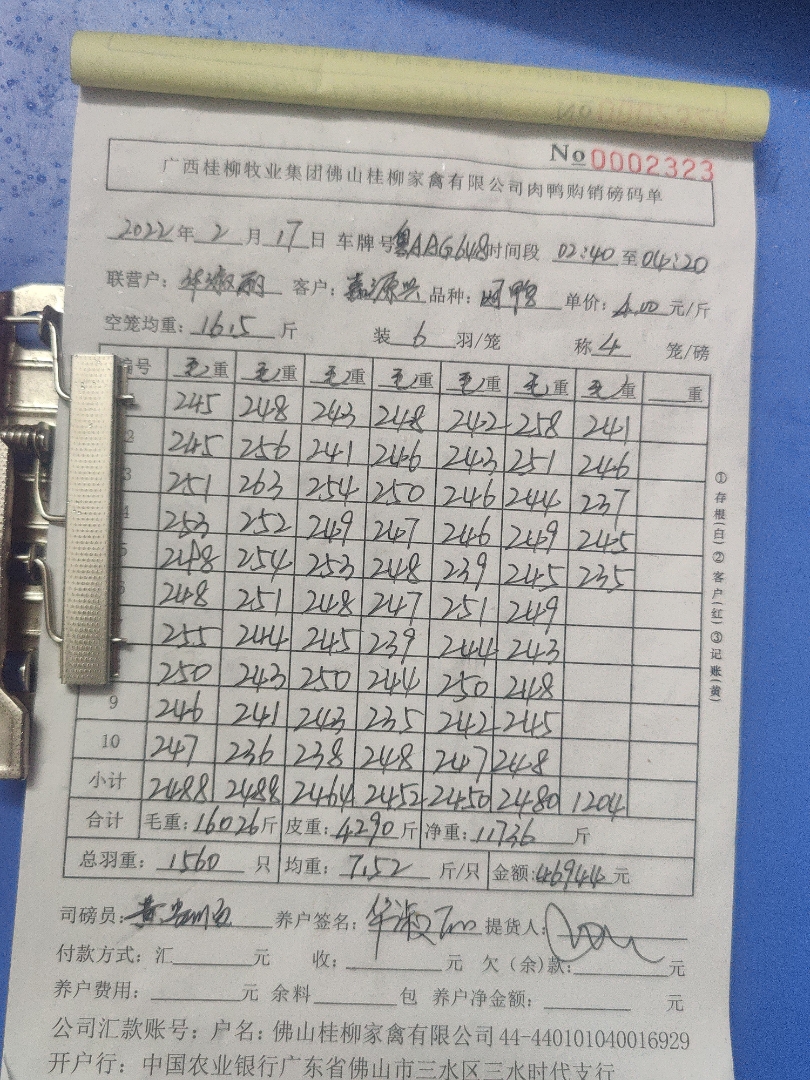 No 0002323
广西桂柳牧业集团佛山桂柳家禽有限公司肉鸭购销磅码单
2022年2月17日 车牌号粤AAG648时间段 02:40至04:20
联营户: 华淑丽 客户: 嘉源兴 品种: 单价: 4.00元/斤
空笼均重: 16.5 斤 装 6 羽/笼 称 4 笼/磅
编号 毛重 毛重 毛重 毛重 毛重 毛重 毛重 重
245 248 243 248 242 258 241
2 245 256 241 246 243 251 246
3 251 263 254 250 246 244 237
4 253 252 249 247 246 249 245
5 248 254 253 248 239 245 235
248 251 248 247 251 249
255 244 245 239 244 243
250 243 250 244 250 248
9 246 241 243 235 242 245
10 247 236 238 248 247 248
小计 2488 2488 2464 2452 2450 2480 1204
合计 毛重: 16026斤 皮重: 4290斤 净重: 11736 斤
总羽重: 1560 只 均重: 7.52 斤/只 金额: 46944元
司磅员: 养户签名: 华淑 提货人:
付款方式: 汇 元 收: 元 欠(余)款: 元
养户费用: 元 余料 包 养户净金额: 元
公司汇款账号: 户名: 佛山桂柳家禽有限公司44-440101040016929
开户行: 中国农业银行广东省佛山市三水区三水时代支行
①存根(白)②客户(红)③记账(黄)